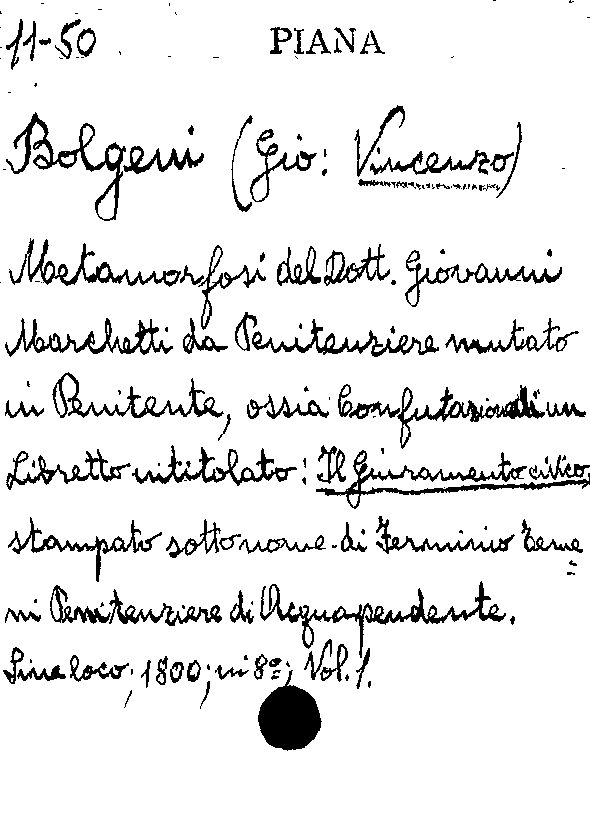 11-50 PIANA
Bolgeni (Gio: Vincenzo)
Metamorfosi del Dott. Giovanni
Marchetti da Penitenziere mutato
in Penitente, ossia Confutazione di un
Libretto intitolato: Il Giuramento civico,
stampato sotto nome di Ferminio Teme
ni Penitenziere di Acquapendente.
Sine loco; 1800; in 8º; Vol. 1.